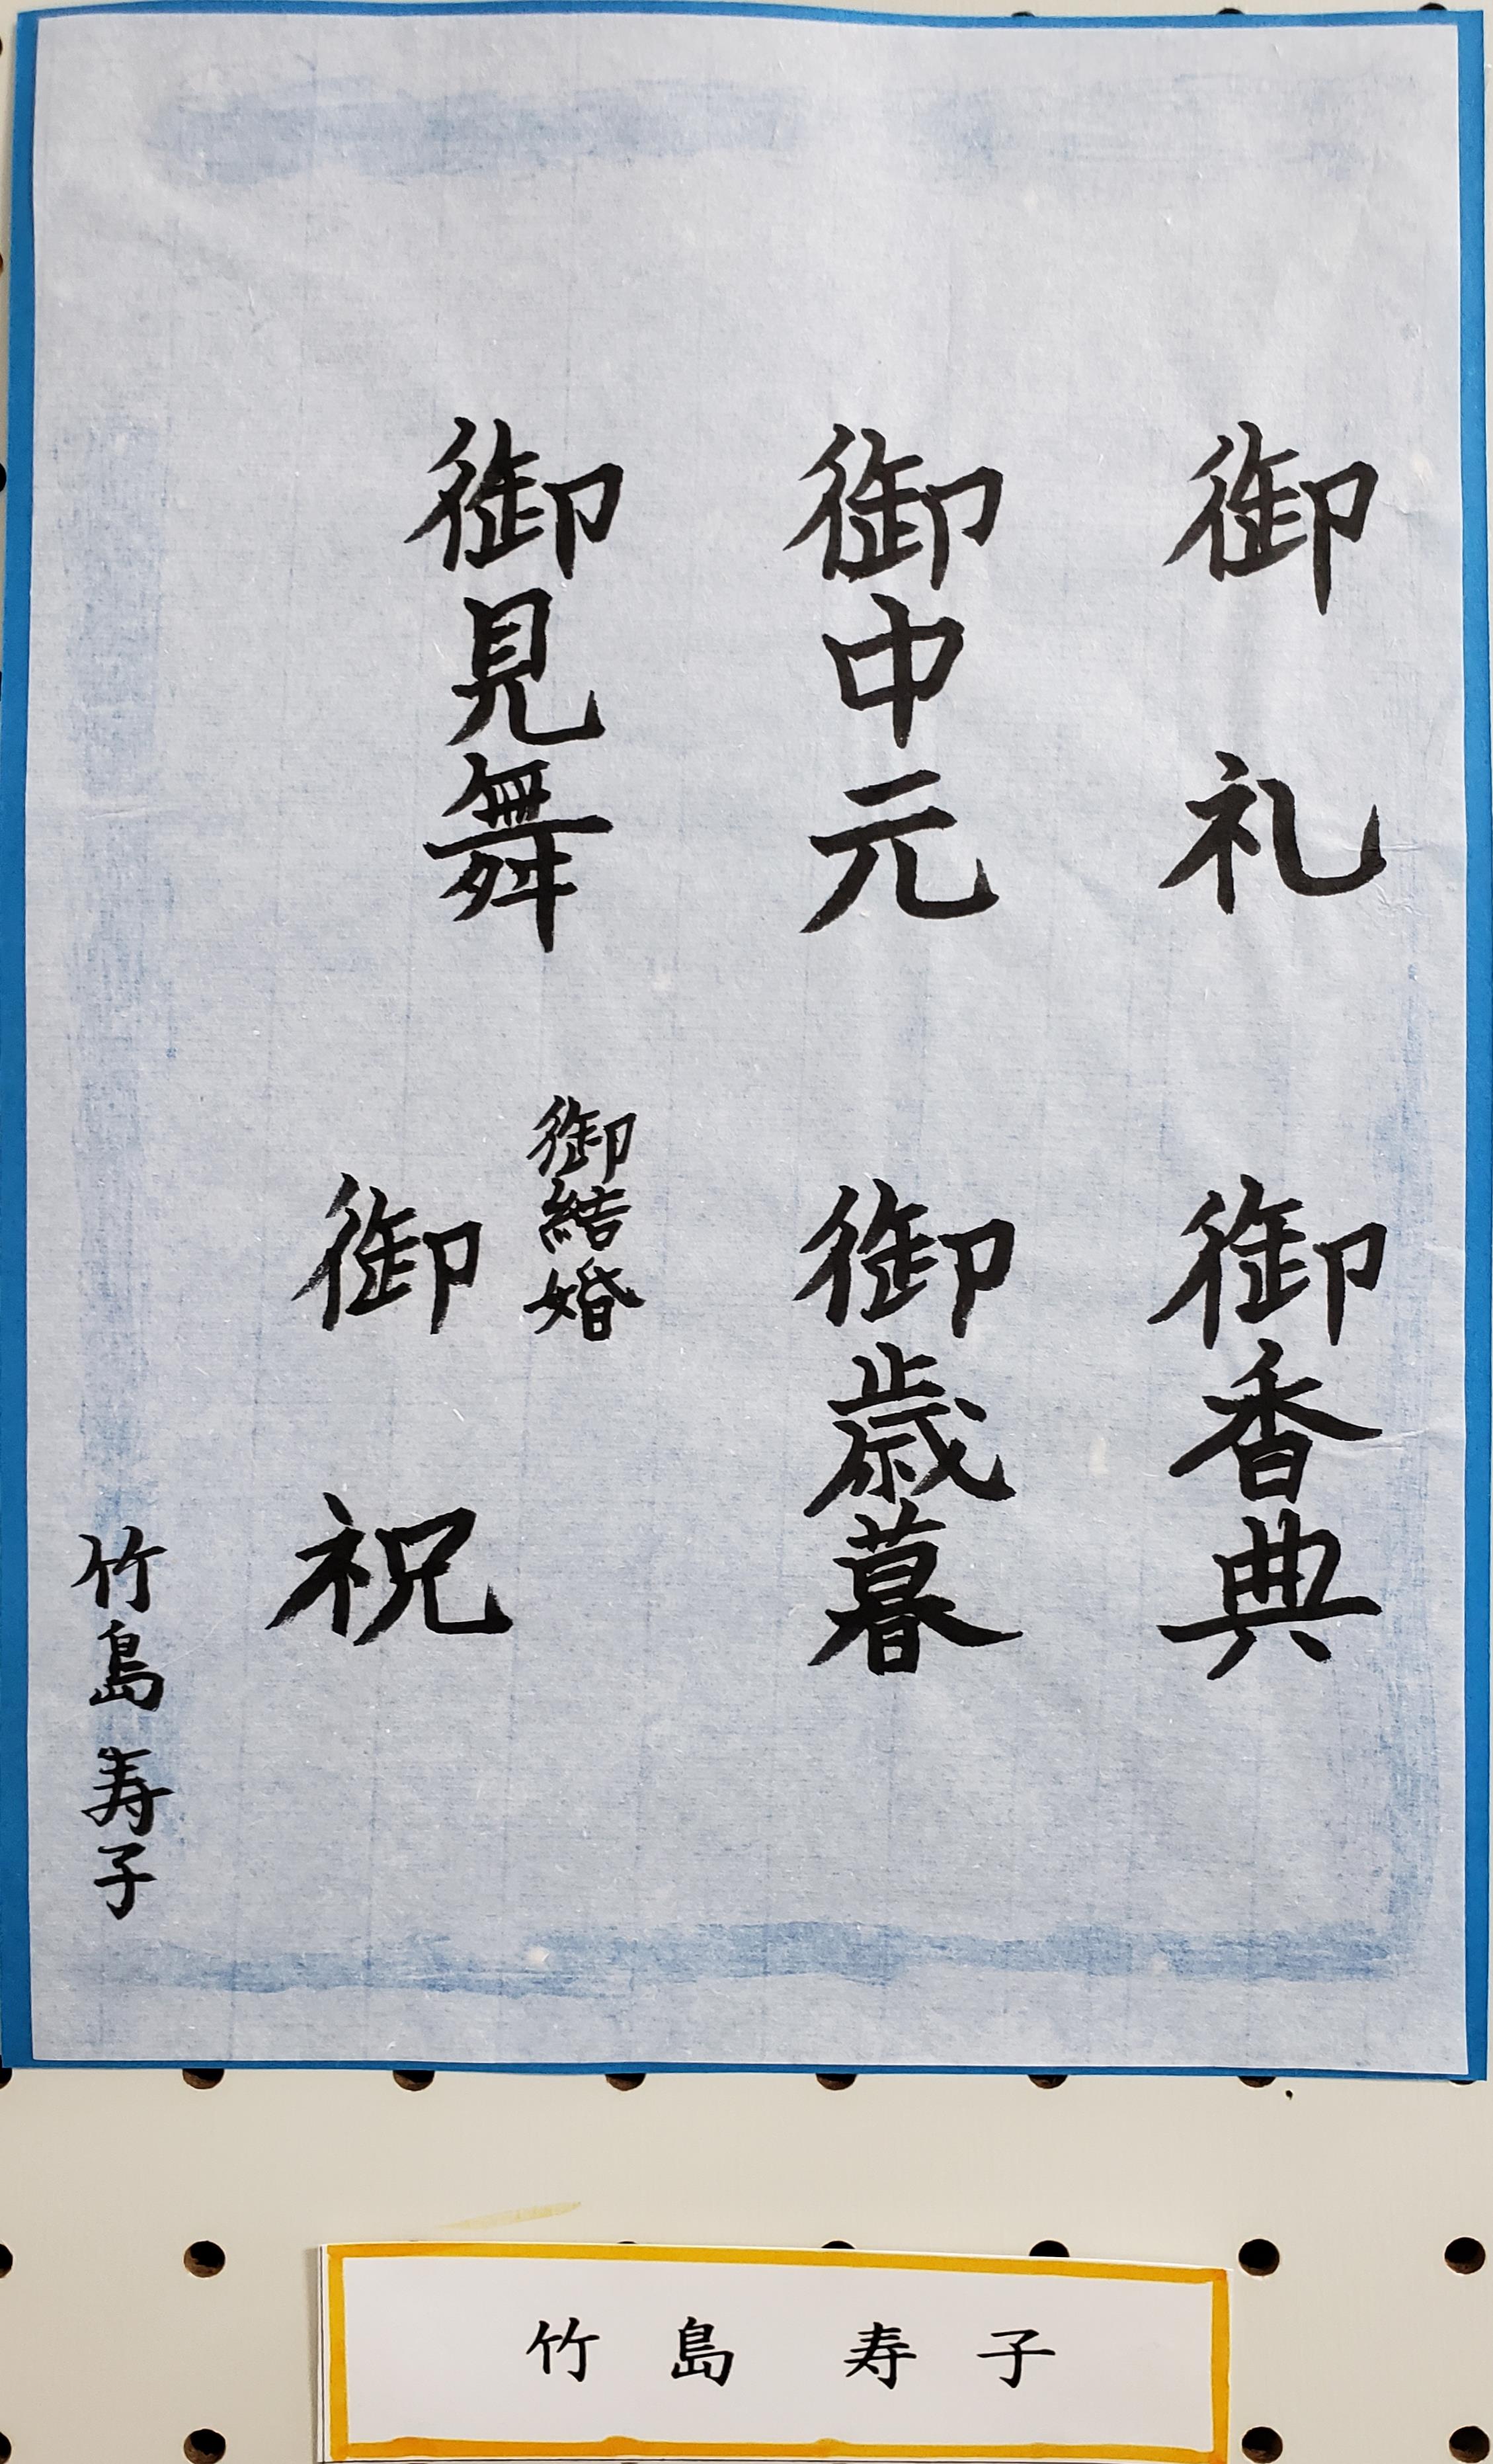 御礼
御香典
御中元
御歳暮
御見舞
御結婚
御祝
竹島寿子
竹島 寿子